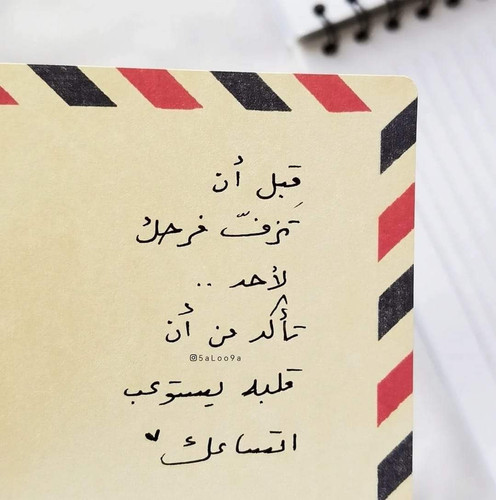 قبل أن
تَزفّ فرحك
لأحد ..
تأكد من أن
@5aLoo9a
قلبه يستوعب
اتساعك